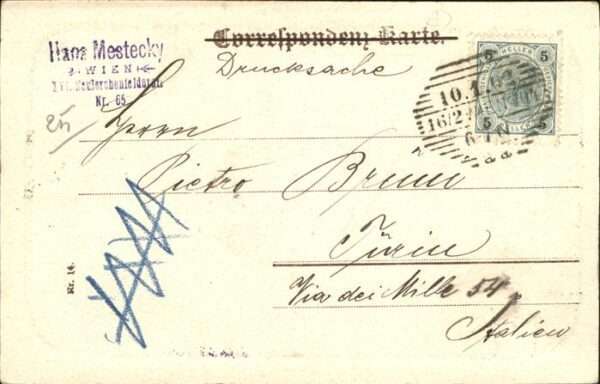 Correspondenz-Karte.
Hans Mestecky
WIEN
XVI. Neulerchenfelderstr.
Nr. 65.
Drucksache
5 HELLER 5
5 5
10.1
16/2
Herrn
Pietro Bruni
Turin
Via dei Mille 54
Italien
Nr. 14.